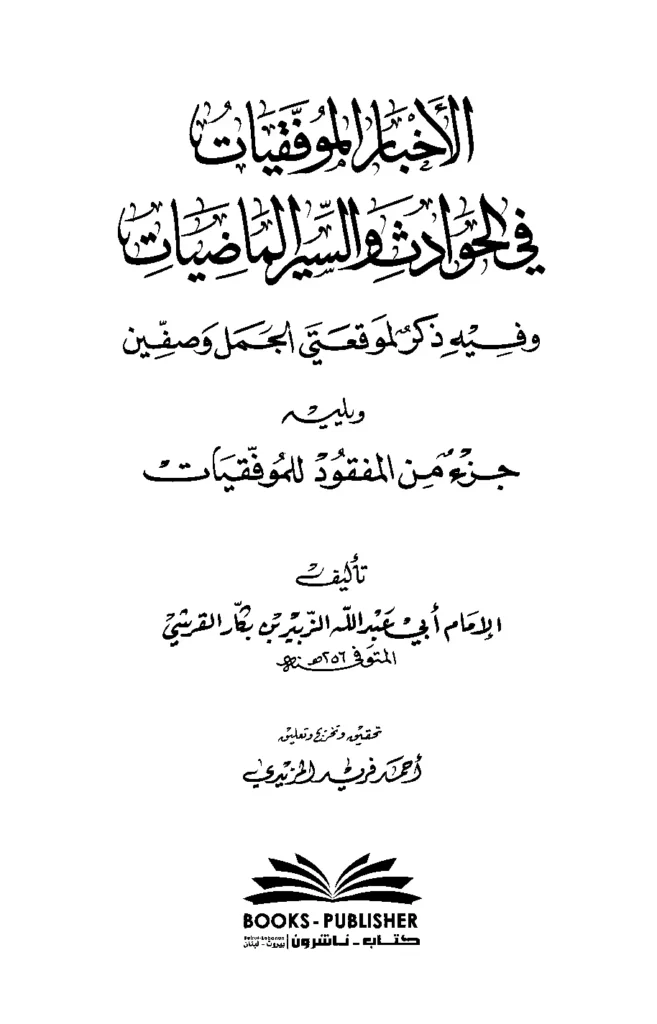 الأخبار الموفقيات
في الحوادث والسير الماضيات
وفيه ذكر لموقعتي الجمل وصفين
ويليه
جزء من المفقود للموفقيات
تأليف
الإمام أبي عبد الله الزبير بن بكار القرشي
المتوفى سنة ٢٥٦هـ
تحقيق وتخريج وتعليق
أحمد فريد المزيدي
BOOKS - PUBLISHER
كتاب - ناشرون | بيروت - لبنان
Beirut-Lebanon